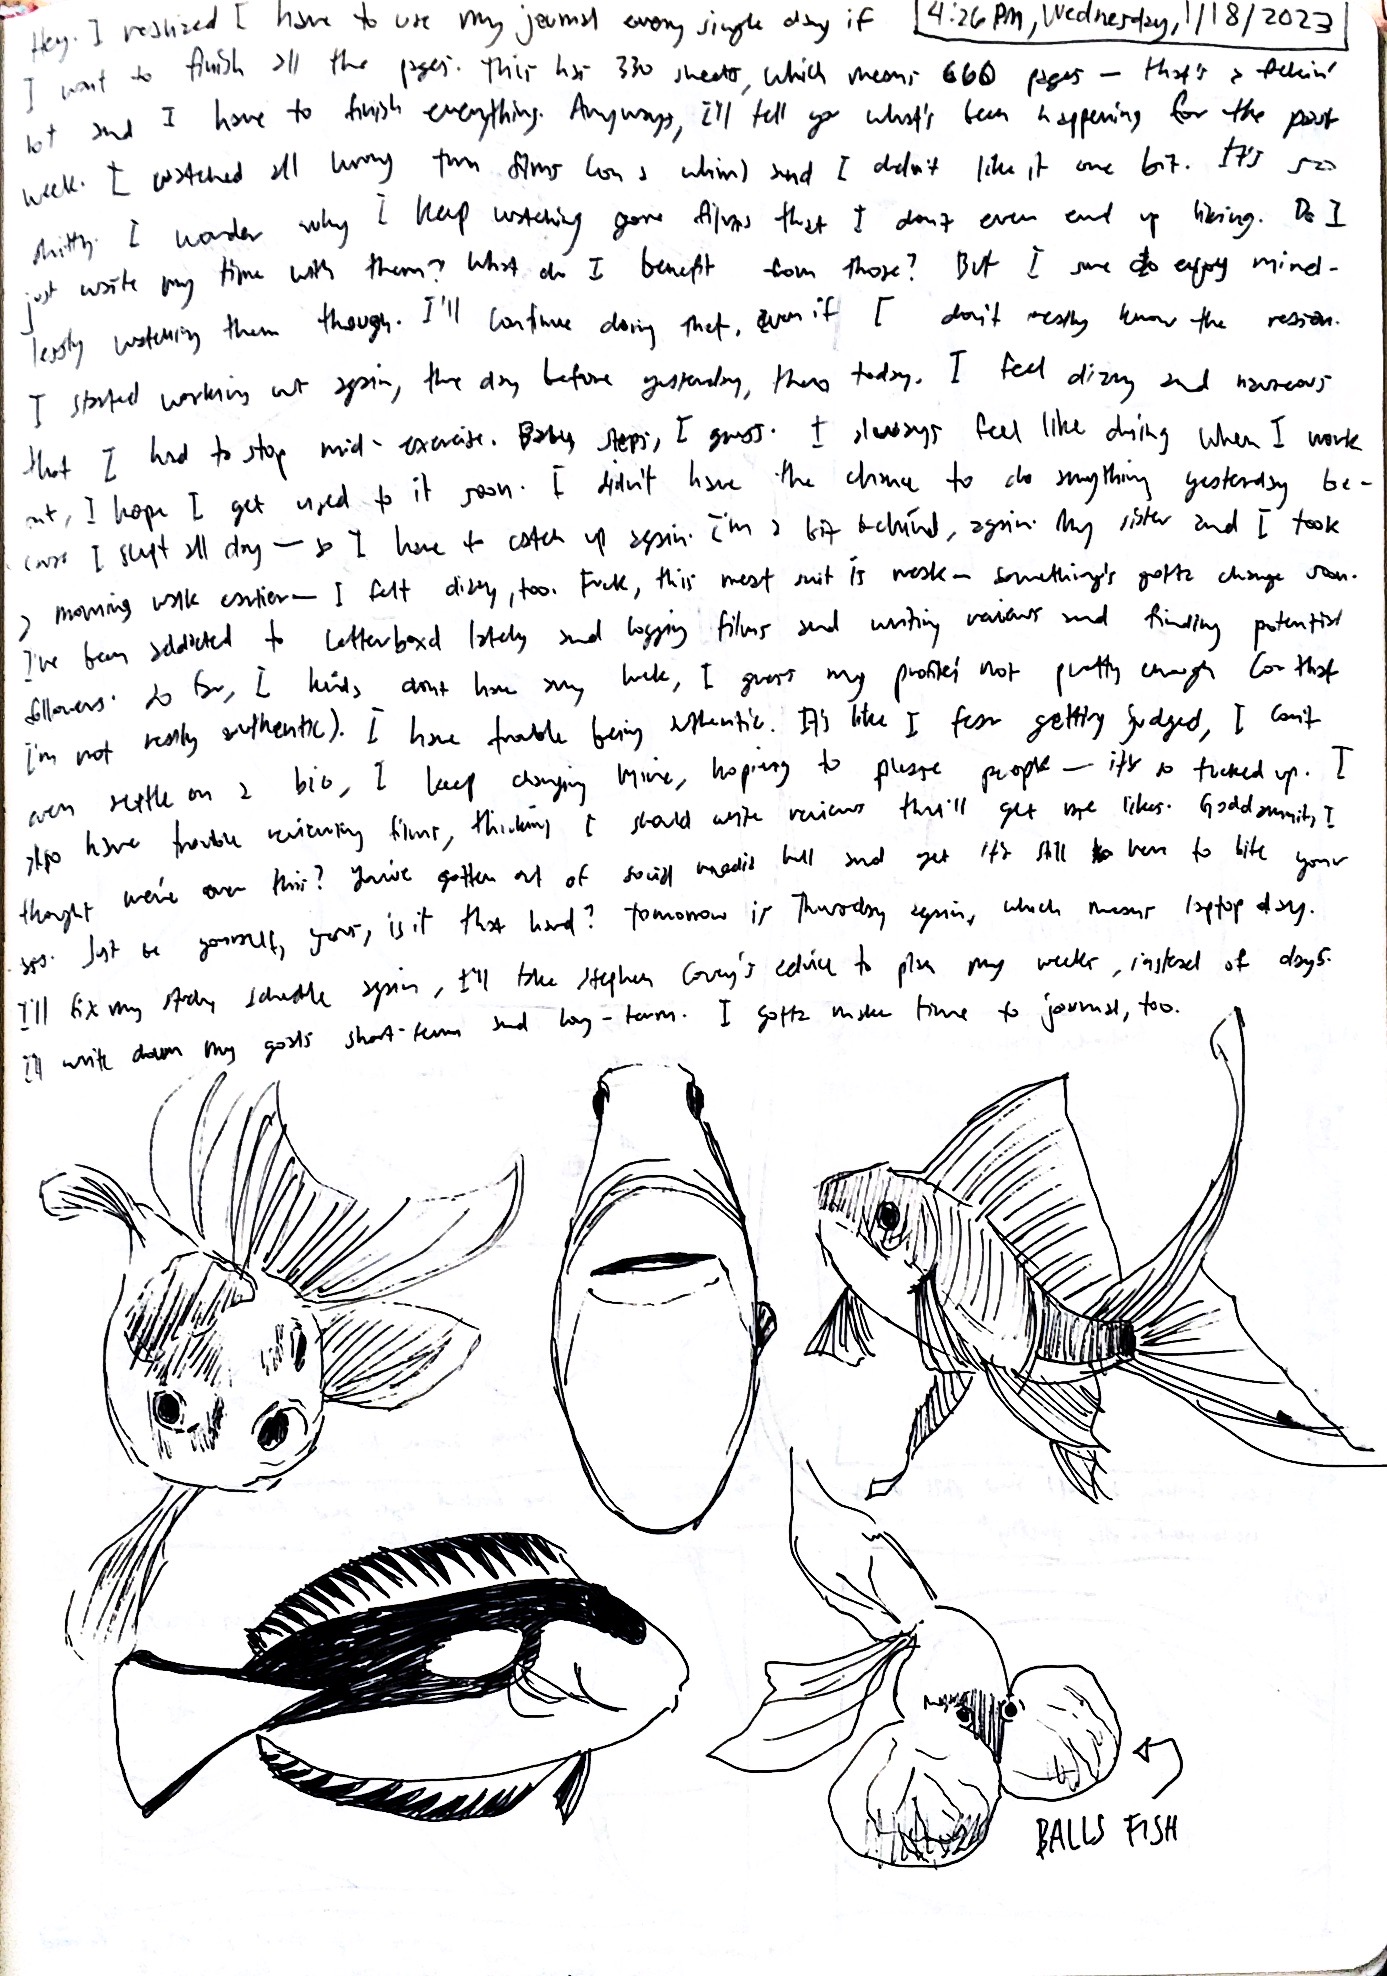 Hey. I realized I have to use my journal every single day if
4:26 PM, Wednesday, 1/18/2023
I want to finish all the pages. This has 330 sheets, which means 660 pages — that's a fckin'
lot and I have to finish everything. Anyways, I'll tell you what's been happening for the past
week. I watched all wrong turn films (on a whim) and I didn't like it one bit. It's soo
shitty. I wonder why I keep watching gore films that I don't even end up liking. Do I
just waste my time with them? What do I benefit from those? But I sure do enjoy mind-
lessly watching them though. I'll continue doing that, even if I don't really know the reason.
I started working out again, the day before yesterday, then today. I feel dizzy and nauseous
that I had to stop mid-exercise. Baby steps, I guess. I always feel like dying when I work
out, I hope I get used to it soon. I didn't have the chance to do anything yesterday be-
cause I slept all day — so I have to catch up again. I'm a bit behind, again. My sister and I took
a morning walk earlier — I felt dizzy, too. Fuck, this meat suit is weak — something's gotta change soon.
I've been addicted to Letterboxd lately and logging films and writing reviews and finding potential
followers. So far, I kinda don't have any luck, I guess my profile's not pretty enough (or that
I'm not really authentic). I have trouble being authentic. It's like I fear getting judged, I can't
even settle on a bio, I keep changing mine, hoping to please people — it's so fucked up. I
also have trouble reviewing films, thinking I should write reviews that'll get me likes. Goddammit, I
thought we're over this? You've gotten out of social media hell and yet it's still here to bite your
ass. Just be yourself, yours, is it that hard? Tomorrow is Thursday again, which means laptop day.
I'll fix my study schedule again, I'll take Stephen Covey's advice to plan my weeks, instead of days.
I'll write down my goals short-term and long-term. I gotta make time to journal, too.
BALLS FISH